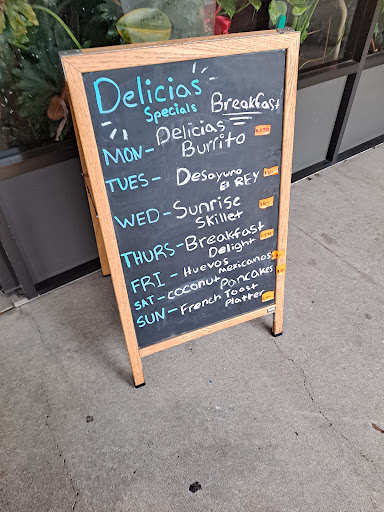 Delicias
Specials Breakfast
MON- Delicias
Burrito
TUES- Desayuno
El REY
WED- Sunrise
Skillet
THURS- Breakfast
Delight
FRI- Huevos Mexicanos
SAT- coconut Pancakes
SUN- French Toast
Platter